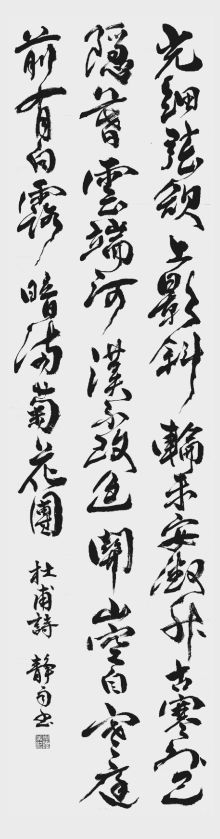 光細弦欲上影斜輪未安微升古塞外已
隱暮雲端河漢不改色關山空自寒庭
前有白露暗滿菊花團 杜甫詩 靜書